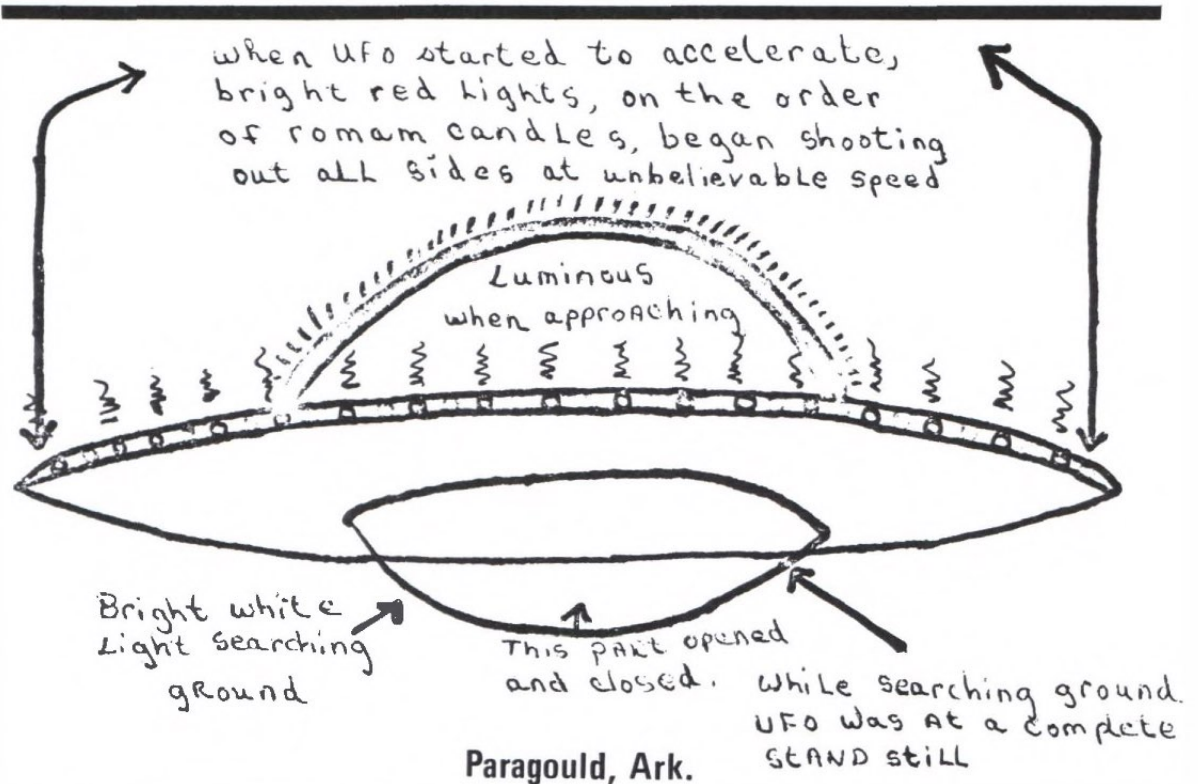 when UFO started to accelerate,
bright red Lights, on the order
of romam candLes, began shooting
out aLL sides at unbelievabLe speed
Luminous
when approAching
Bright white
Light searching
gRound
This pARt opened
and closed.
while searching ground.
UFO was At a complete
STAND still
Paragould, Ark.